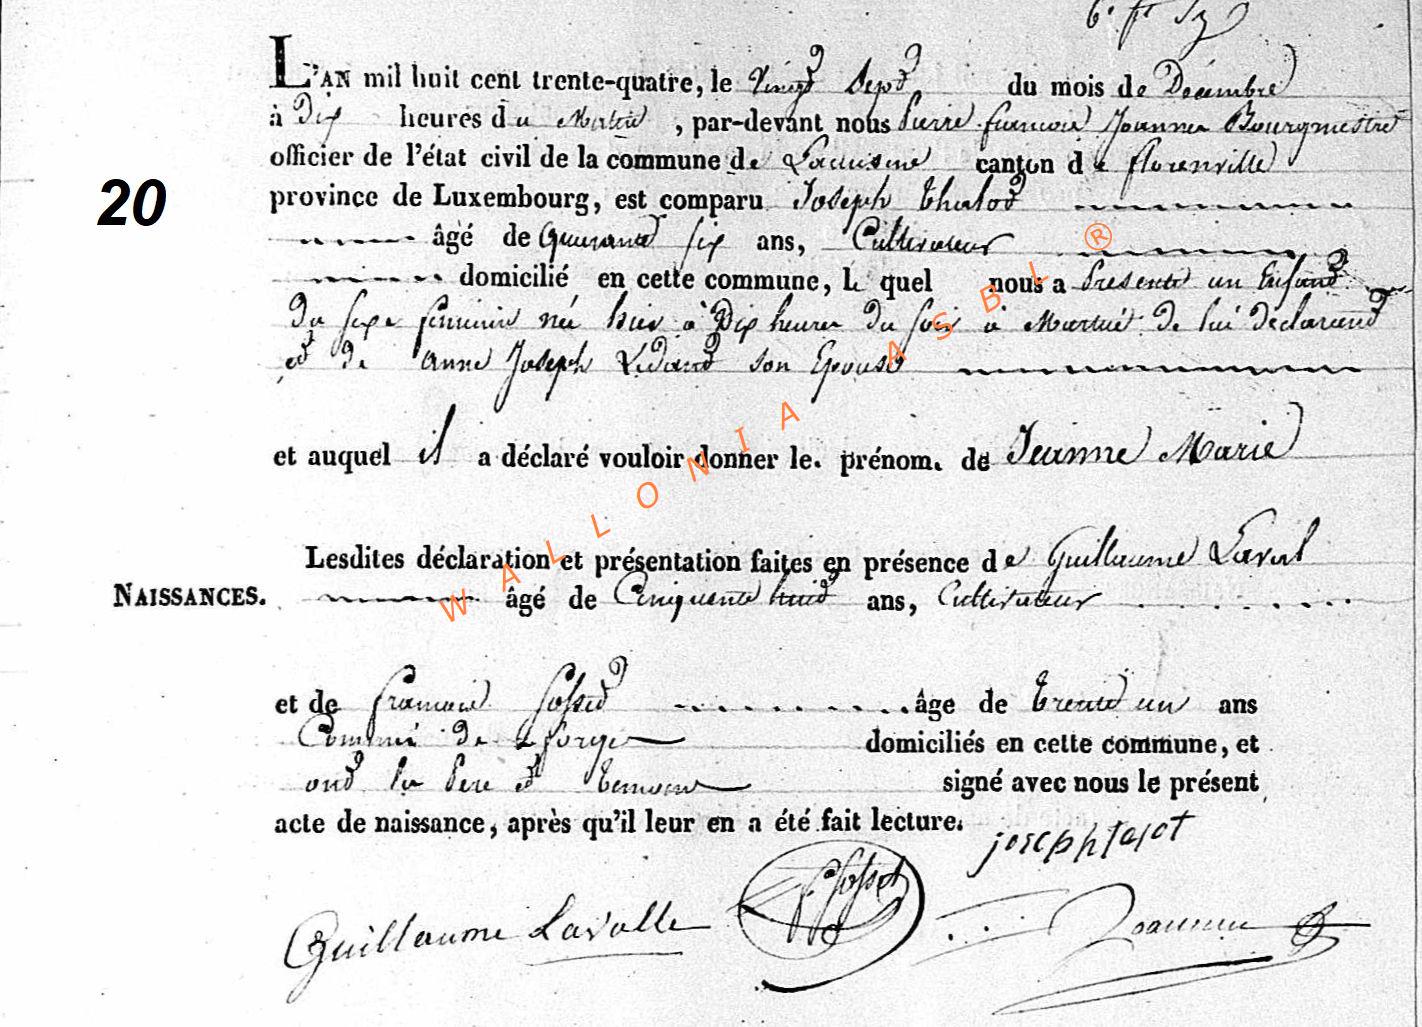 20
L'AN mil huit cent trente-quatre, le Vingt Sept du mois de Décembre
à Dix heures du Matin, par-devant nous Pierre francois Joannes Bourgmestre
officier de l'état civil de la commune de canton de florenville
province de Luxembourg, est comparu Joseph Thalot
âgé de Quarante six ans, Cultivateur
domicilié en cette commune, Le quel nous a Presenté un Enfant
du sexe feminin née hier à Dix heures du soir à de lui déclarant
et de anne Joseph son Epouse
et auquel il a déclaré vouloir donner le. prénom. de Jeanne Marie
Lesdites déclaration et présentation faites en présence de Guillaume Laval
NAISSANCES. âgé de Cinquante huit ans, Cultivateur
et de francois Gosset âge de trente un ans
Commis de forges domiciliés en cette commune, et
ont Le Pere et temoins signé avec nous le présent
acte de naissance, après qu'il leur en a été fait lecture.
joseph talot
Guillaume Lavalle Gosset Joannes
WALLONIA ASBL ®